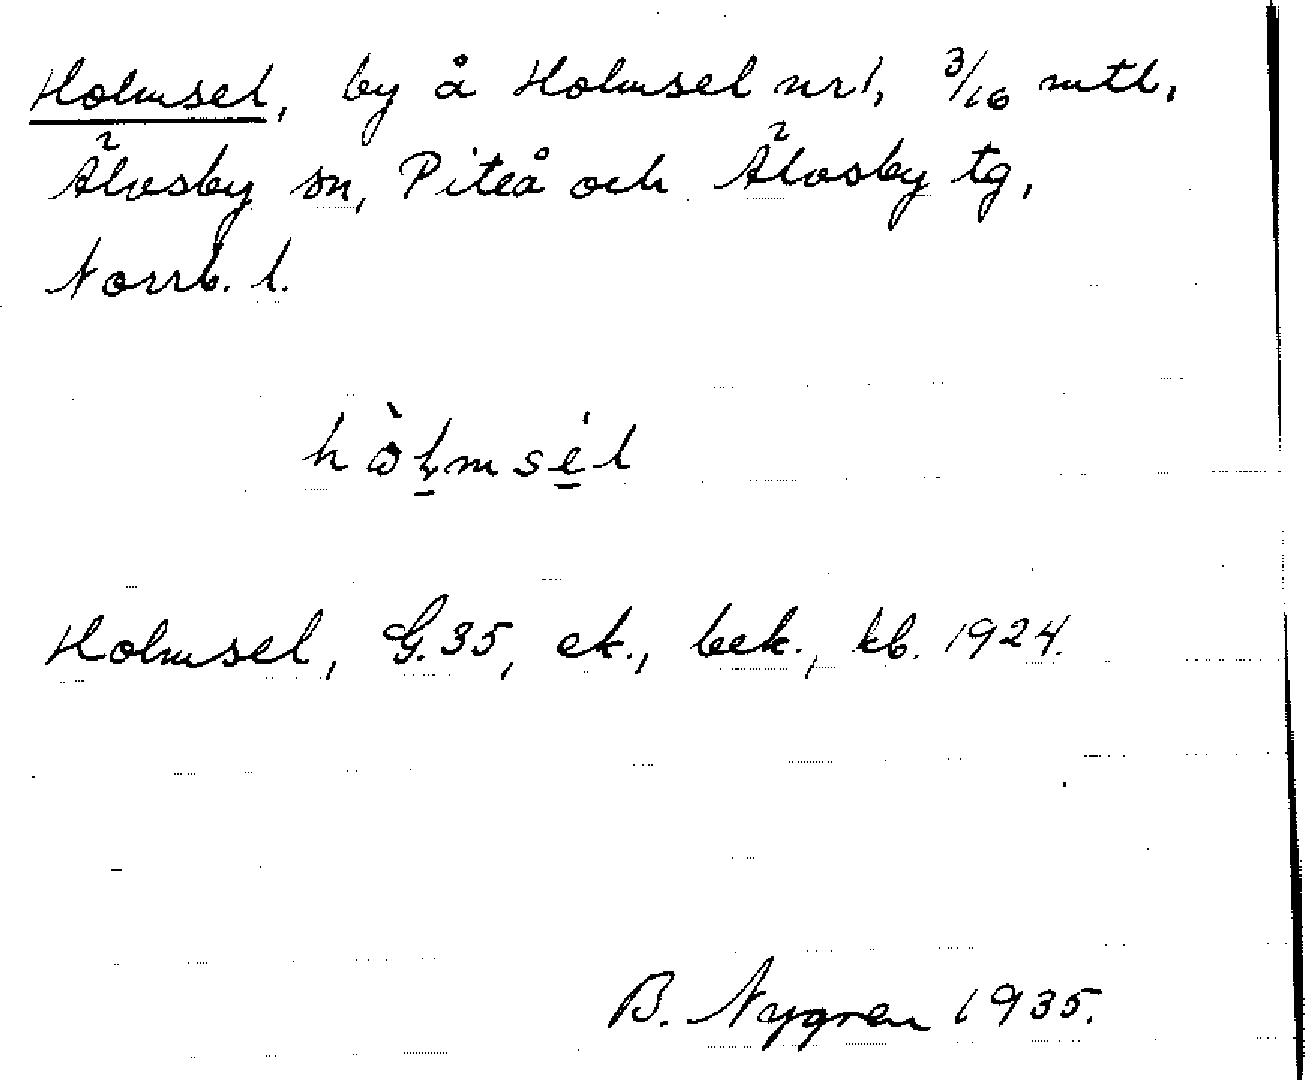 Holmsel, by å Holmsel nr 1, 3/16 mtl,
Älvsby sn, Piteå och Älvsby tg,
Norrb. l.
hòḷmsél
Holmsel, G.35, ek., bek., kb. 1924.
B. Nygren 1935.